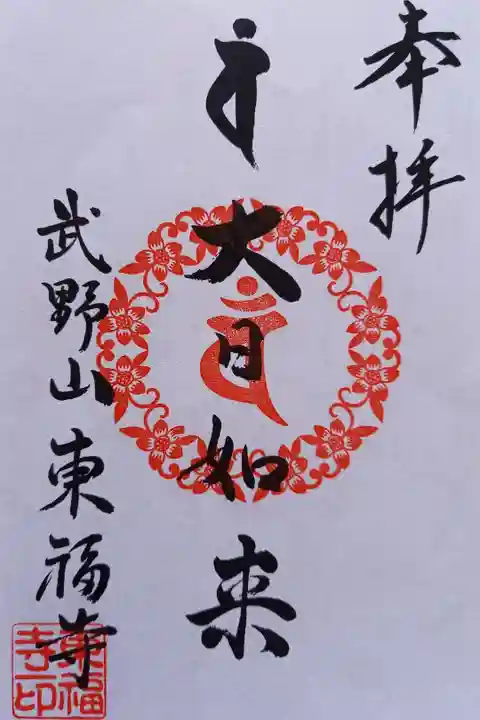 奉拝
大日如来
武野山東福寺
東福
寺印